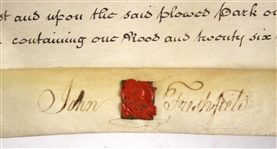 st and upon the said plowed Park
containing one Rood and twenty six
John Freshfield